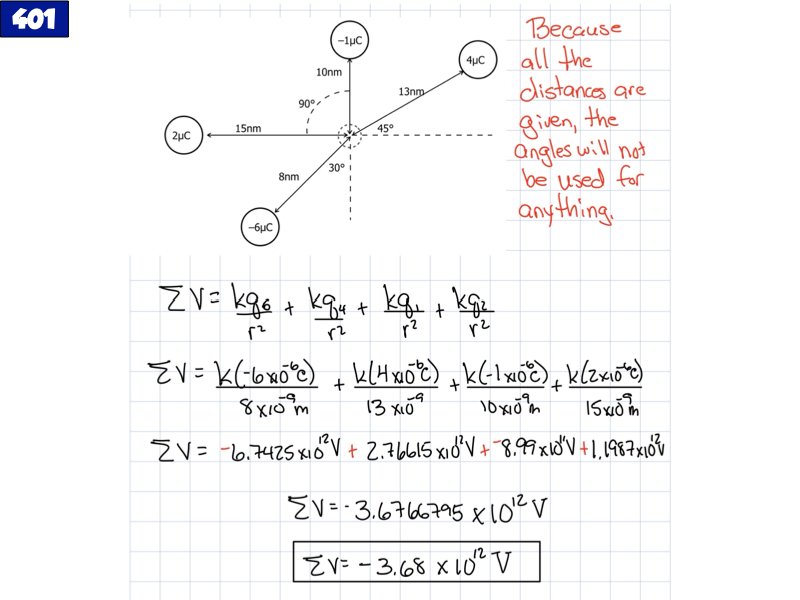 401
−1μC
4μC
10nm
13nm
90°
15nm
45°
2μC
30°
8nm
−6μC
Because
all the
distances are
given, the
angles will not
be used for
anything.
ΣV = kq₆/r² + kq₄/r² + kq₁/r² + kq₂/r²
ΣV = k(-6x10⁻⁶C)/8x10⁻⁹m + k(4x10⁻⁶C)/13x10⁻⁹ + k(-1x10⁻⁶C)/10x10⁻⁹m + k(2x10⁻⁶C)/15x10⁻⁹m
ΣV = -6.7425x10¹²V + 2.76615x10¹²V + -8.99x10¹¹V + 1.1987x10¹²V
ΣV = -3.6766795 x 10¹² V
ΣV = -3.68 x 10¹² V